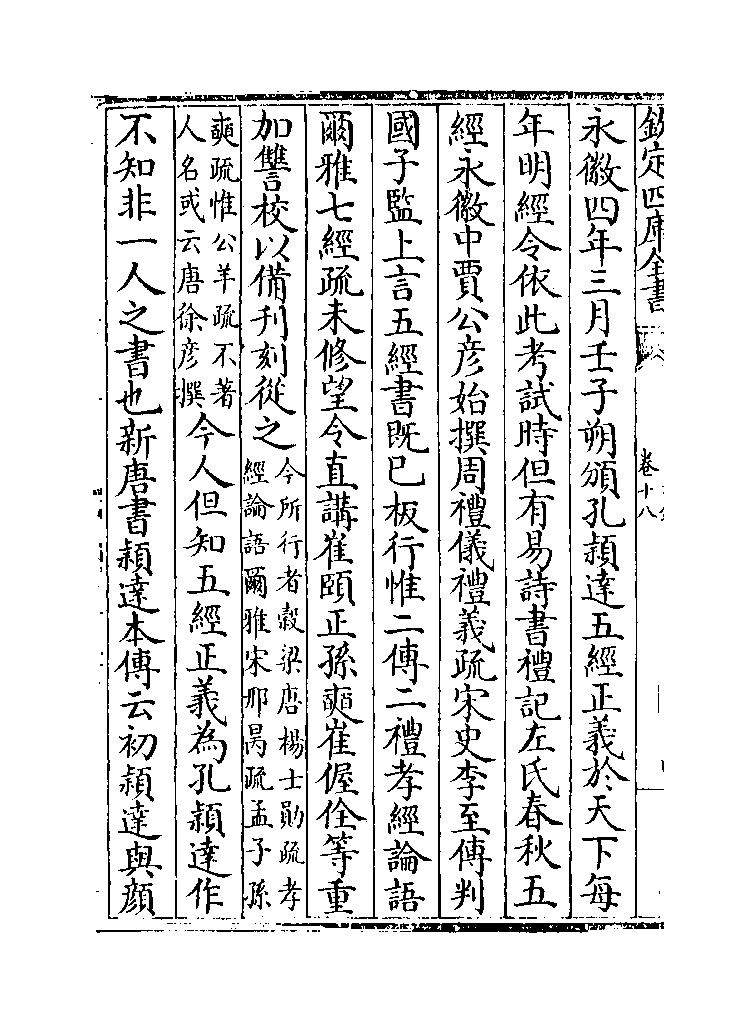 欽定四庫全書
卷十八
永徽四年三月壬子朔頒孔頴達五經正義於天下每
年明經令依此考試時但有易詩書禮記左氏春秋五
經永徽中賈公彦始撰周禮儀禮義疏宋史李至傳判
國子監上言五經書既已板行惟二傳二禮孝經論語
爾雅七經疏未修望令直講崔頤正孫奭崔偓佺等重
加讐校以備刋刻從之今所行者穀梁唐楊士勛疏孝
經論語爾雅宋邢昺疏孟子孫
奭疏惟公羊疏不著
人名或云唐徐彦撰今人但知五經正義為孔頴達作
不知非一人之書也新唐書頴達本傳云初頴達與顔